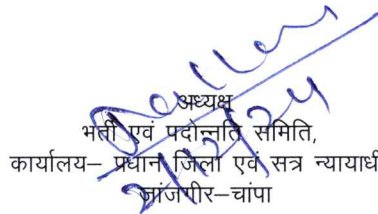 अध्यक्ष
भर्ती एवं पदोन्नति समिति,
कार्यालय– प्रधान जिला एवं सत्र न्यायाधी
जांजगीर–चांपा